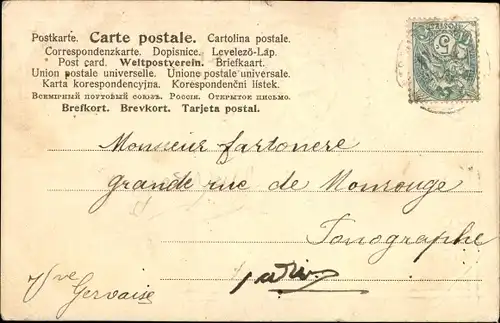 Postkarte. Carte postale. Cartolina postale.
Correspondenzkarte. Dopisnice. Levelező-Láp.
Post card. Weltpostverein. Briefkaart.
Union postale universelle. Unione postale universale.
Karta korespondencyjna. Korespondenční lístek.
Всемірный почтовый союзъ. Россія. Открытое письмо.
Brefkort. Brevkort. Tarjeta postal.
5
Monsieur fartonere
grande rue de Monrouge
Fonographe
Gervaise